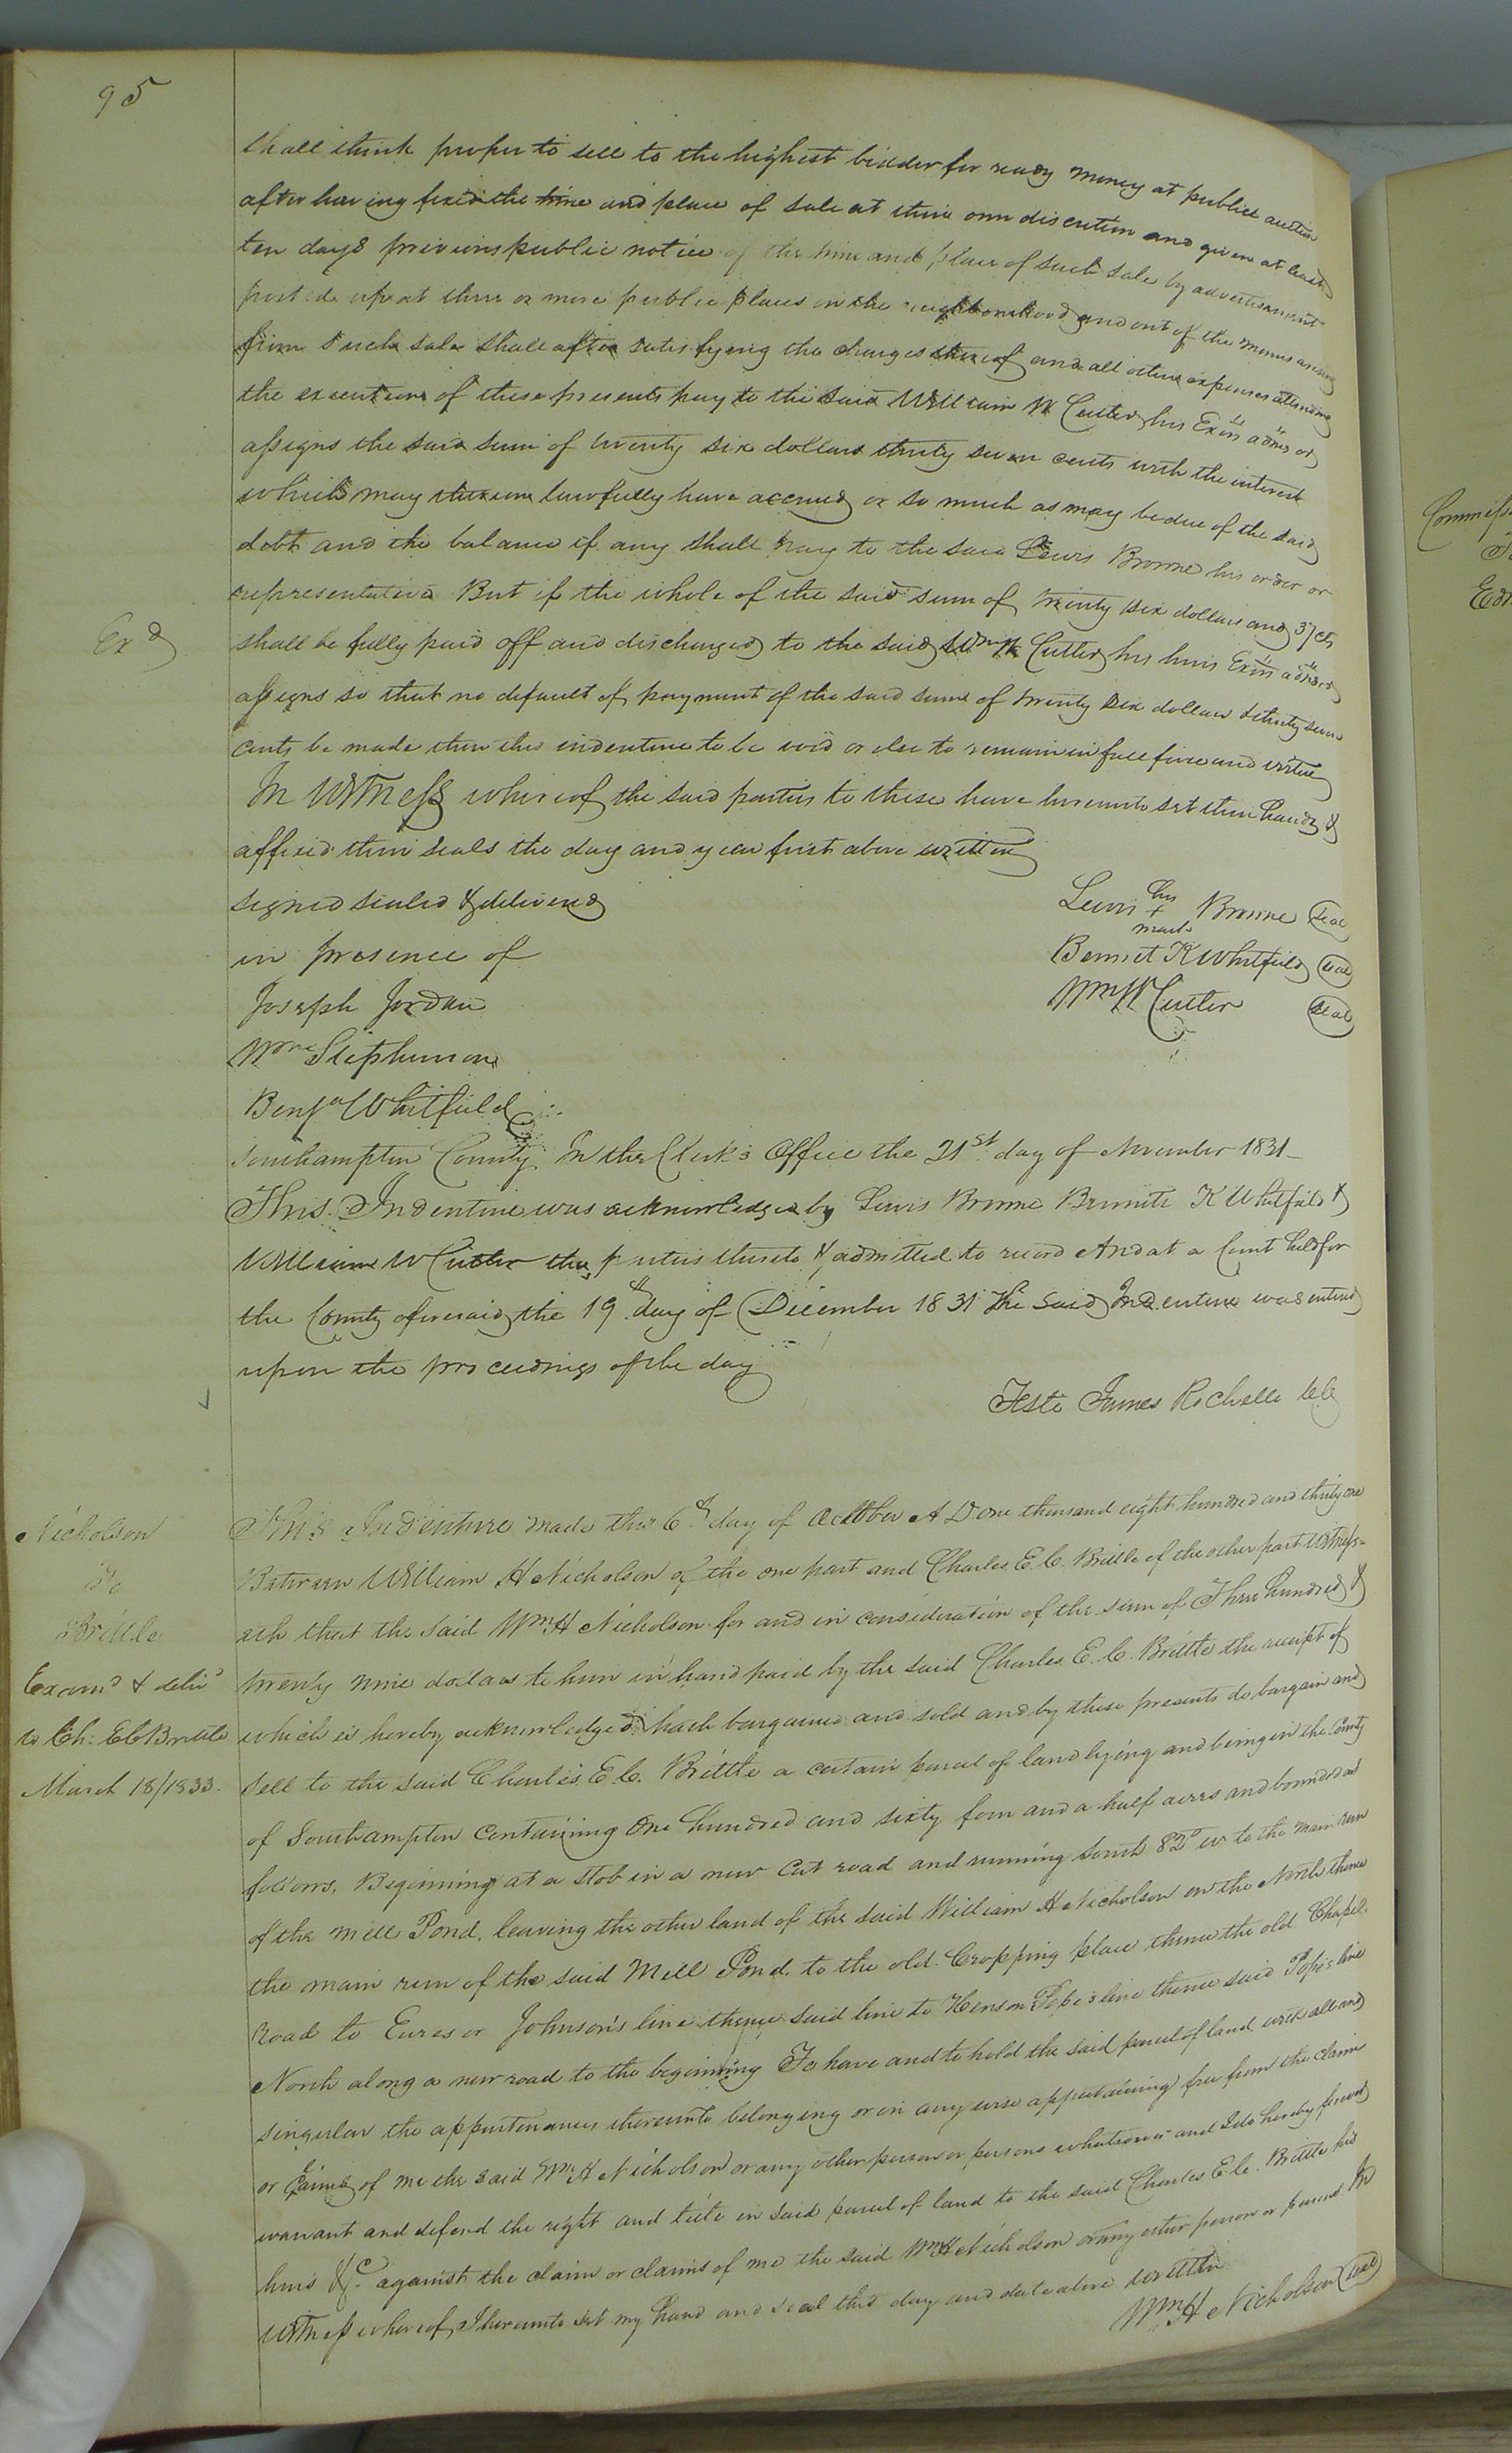 95
shall think proper to sell to the highest bidder for ready money at publick auction
after having fixed the time and place of sale at their own discretion and given at least
ten days previous public notice of the time and place of such sale by advertisement
posted up at three or more public places in the neighbourhood and out of the monies arising
from such sale shall after satisfying the charges thereof and all other expenses attending
the execution of these presents pay to the said William W Cutler his Exrs admrs or
assigns the said sum of twenty six dollars thirty seven cents with the interest
which may thereon lawfully have accrued or so much as may be due of the said
debt and the balance if any shall pay to the said Lewis Browne his order or
representatives But if the whole of the said sum of twenty six dollars and 37 cts
Exd
shall be fully paid off and discharged to the said Wm W Cutler his heirs Exrs admrs or
assigns so that no default of payment of the said sum of twenty six dollars & thirty seven
cents be made then this indenture to be void or else to remain in full force and virtue
In Witness whereof the said parties to these have hereunto set their hands &
affixed their seals the day and year first above written
signed sealed & delivered
in presence of
Joseph Jordan
Wm Stephenson
Benja Whitfield
Lewis his + mark Browne seal
Bennet K Whitfield seal
Wm W Cutler seal
Southampton County In the Clerk's Office the 21st day of November 1831
This Indenture was acknowledged by Lewis Browne Bennitt K Whitfield &
William W Cutler the parties thereto & admitted to record And at a Court held for
the County aforesaid the 19th day of December 1831 The said Indenture was entered
upon the proceedings of the day
Teste James Rochelle CC
Nicholson
To
Brittle
Examd & delivd
to Ch: E C Brittle
March 18/1833.
This Indenture made this 6th day of October A D one thousand eight hundred and thirty one
Between William H Nicholson of the one part and Charles E. C. Brittle of the other part witness-
eth that the said Wm H Nicholson for and in consideration of the sum of Three hundred &
twenty nine dollars to him in hand paid by the said Charles E. C. Brittle the receipt of
which is hereby acknowledged hath bargained and sold and by these presents do bargain and
sell to the said Charles E. C. Brittle a certain parcel of land lying and being in the County
of Southampton Containing One hundred and sixty four and a half acres and bounded as
follows, Beginning at a stob in a new Cut road and running South 82° w to the main run
of the mill Pond, leaving the other land of the said William H Nicholson on the North thence
the main run of the said Mill Pond. to the old Cropping place thence the old Chapel
Road to Eures or Johnson's line thence said line to Henson Pope's line thence said Pope's line
North along a new road to the beginning To have and to hold the said parcel of land with all and
singular the appurtenances thereunto belonging or in any wise appertaining free from the claim
or Claims of me the said Wm H Nicholson or any other person or persons whatsoever and I do hereby forever
warrant and defend the right and title in said parcel of land to the said Charles E. C. Brittle his
heirs &c against the claim or claims of me the said Wm H Nicholson or any other person or persons In
witness whereof I hereunto set my hand and seal this day and date above written
Wm H Nicholson seal